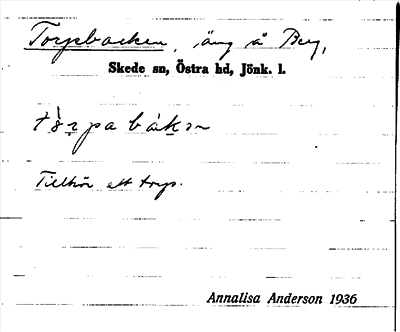 Torpsbacken, äng å Berg,
Skede sn, Östra hd, Jönk. l.
Tillhör ett torp.
Annalisa Anderson 1936